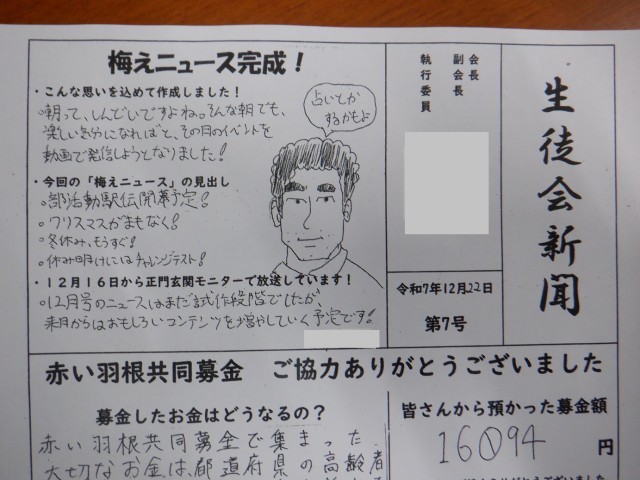 生徒会新聞
会長
副会長
執行委員
令和7年12月22日
第7号
梅えニュース完成！
・こんな思いを込めて作成しました！
○朝って、しんどいですよね。そんな朝でも、
楽しい気分になればと、その日のイベントを
動画で発信しようとなりました！
・今回の「梅えニュース」の見出し
○部活動駅伝開幕予定！
○クリスマスがまもなく！
○冬休み、もうすぐ！
○休み明けにはチャレンジテスト！
・１２月１６日から正門玄関モニターで放送しています！
○12月号のニュースはまだ試作段階でしたが、
来月からはおもしろいコンテンツを増やしていく予定です！
占いとか
するかもよ
赤い羽根共同募金　ご協力ありがとうございました
募金したお金はどうなるの？
赤い羽根共同募金で集まった
大切なお金は、都道府県の高齢者
皆さんから預かった募金額
16094円